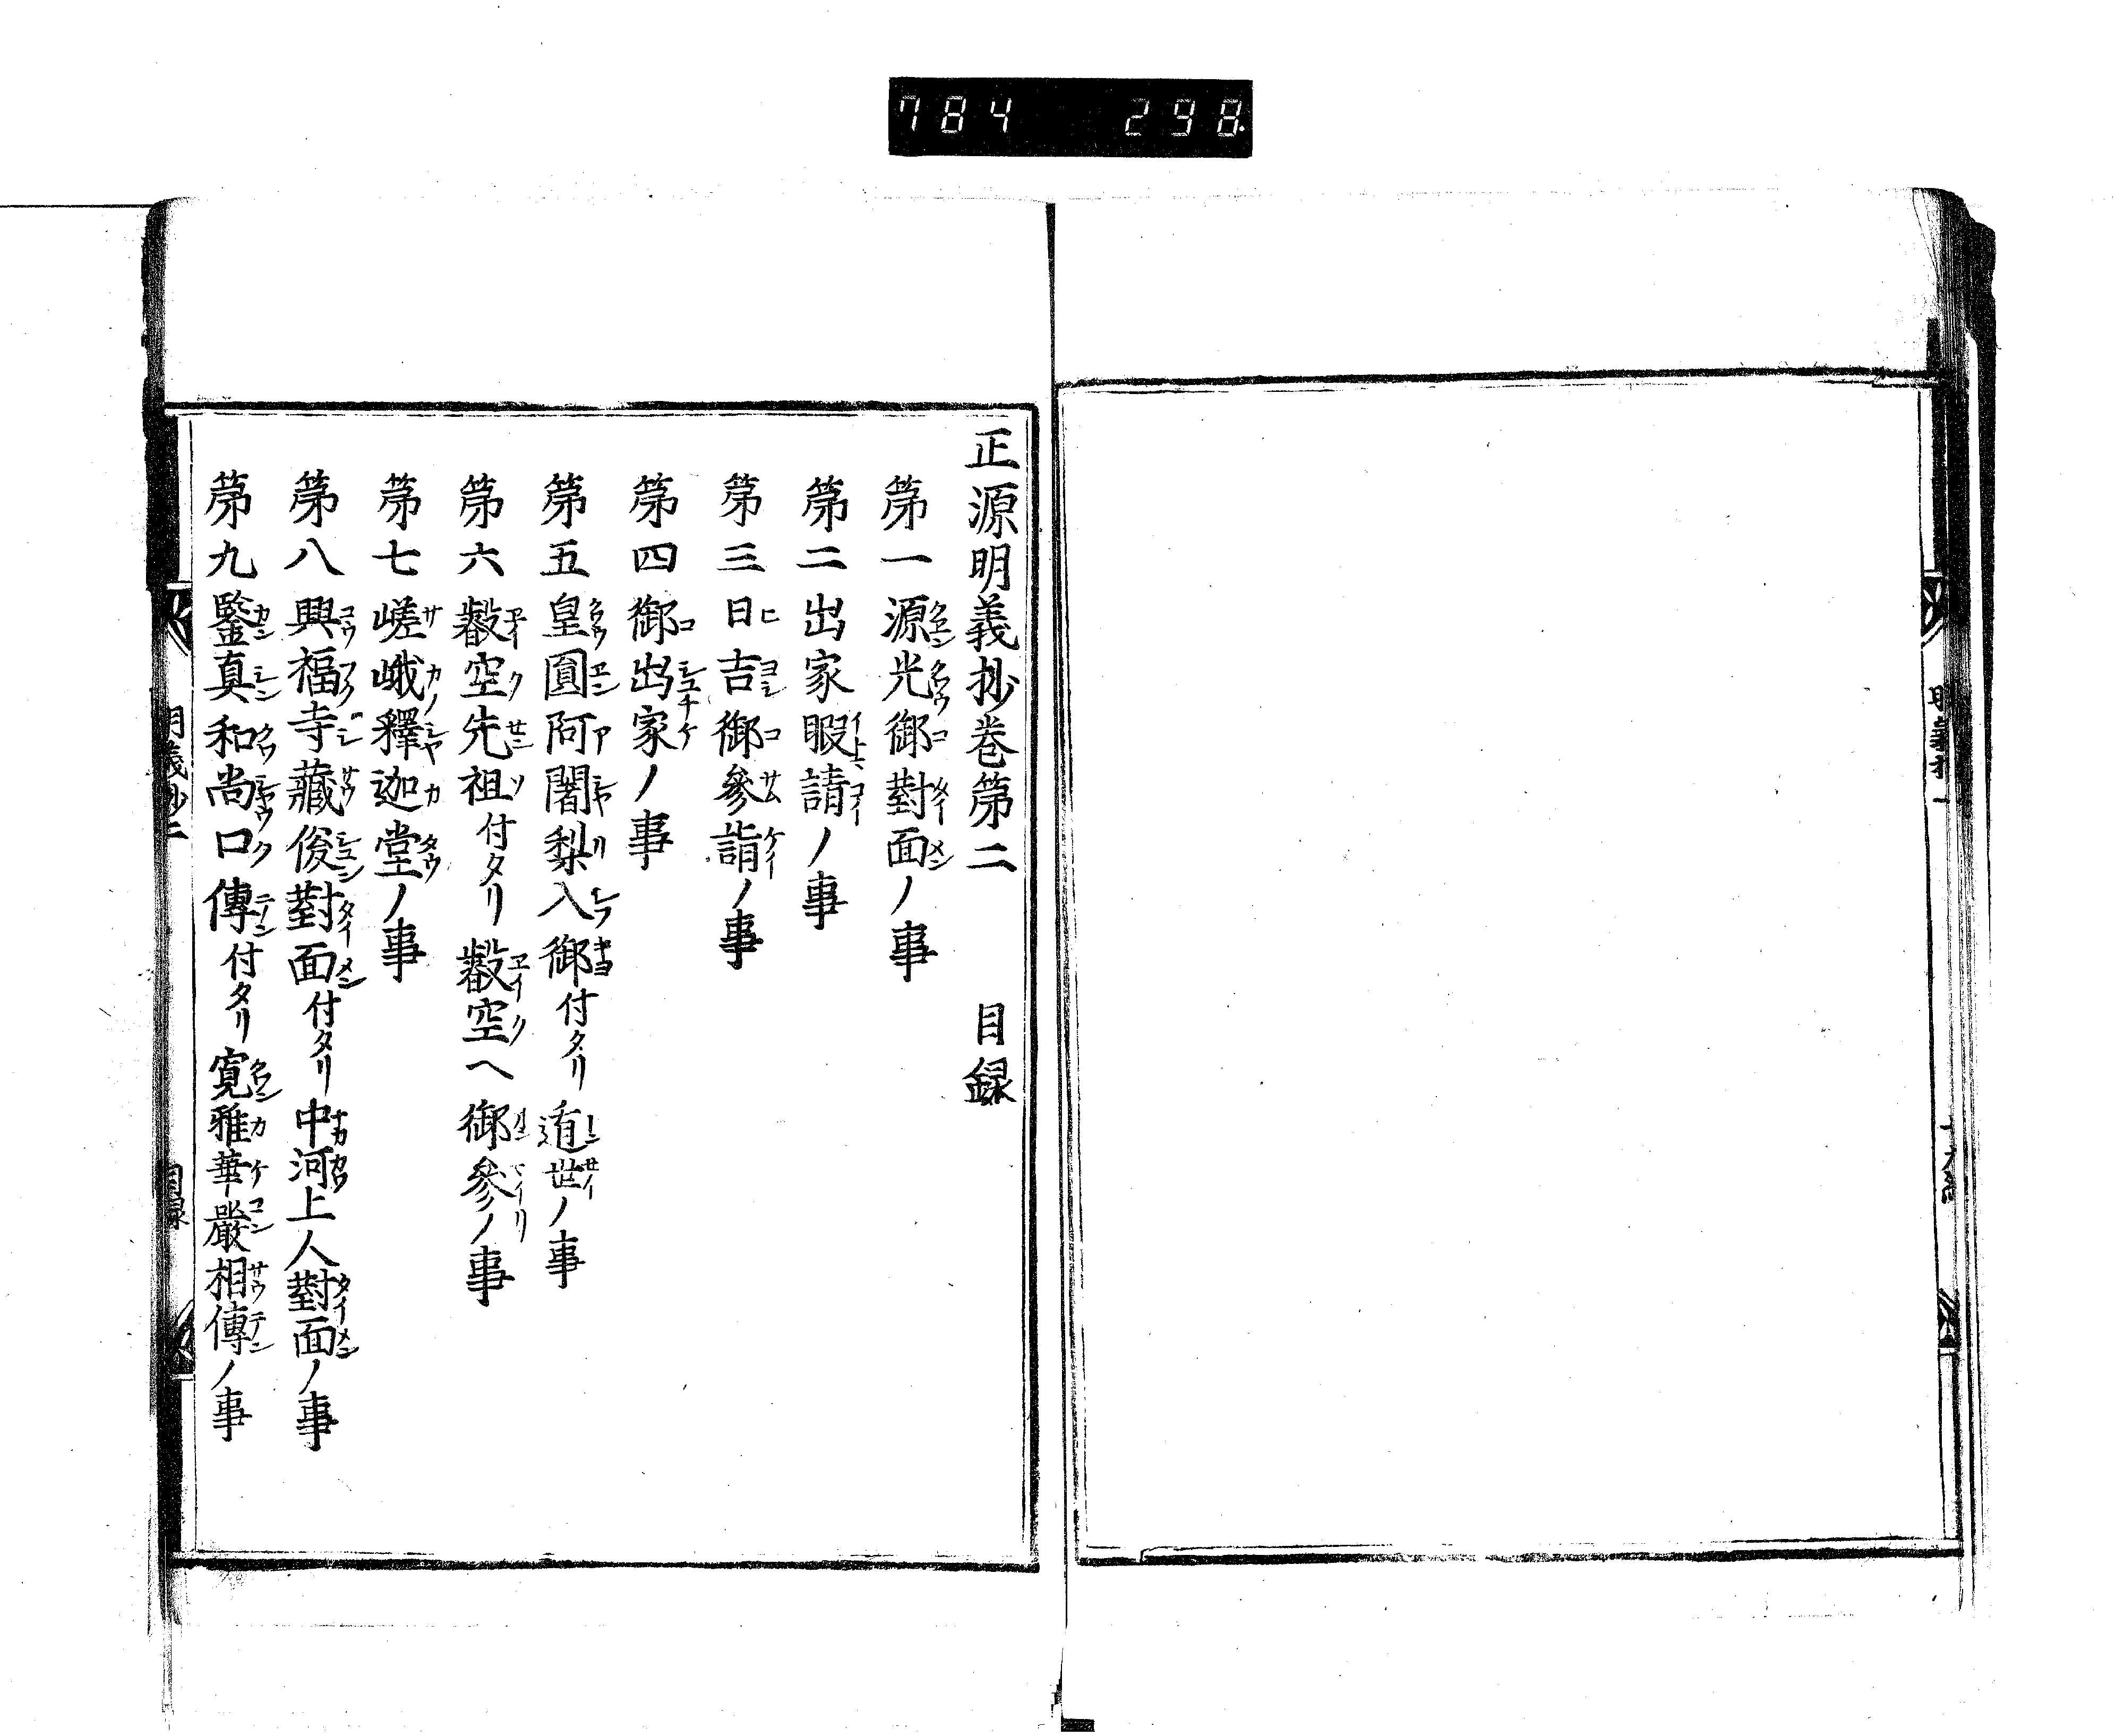 784 298
正源明義抄卷第二 目録
第一源光御對面ノ事
第二出家暇請ノ事
第三日吉御參詣ノ事
第四御出家ノ事
第五皇圓阿闍梨入御付タリ遁世ノ事
第六叡空先祖付タリ叡空ヘ御參ノ事
第七嵯峨釋迦堂ノ事
第八興福寺藏俊對面付タリ中河上人對面ノ事
第九鑒真和尚口傳付タリ寛雅華嚴相傳ノ事
明義抄二 目録